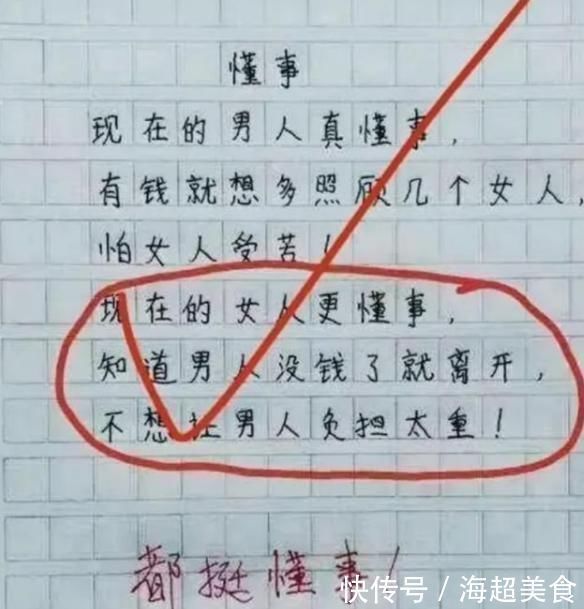 懂事
现在的男人真懂事,
有钱就想多照顾几个女人,
怕女人受苦!
现在的女人更懂事,
知道男人没钱了就离开,
不想让男人负担太重!
都挺懂事!
快传号 / 海超美食